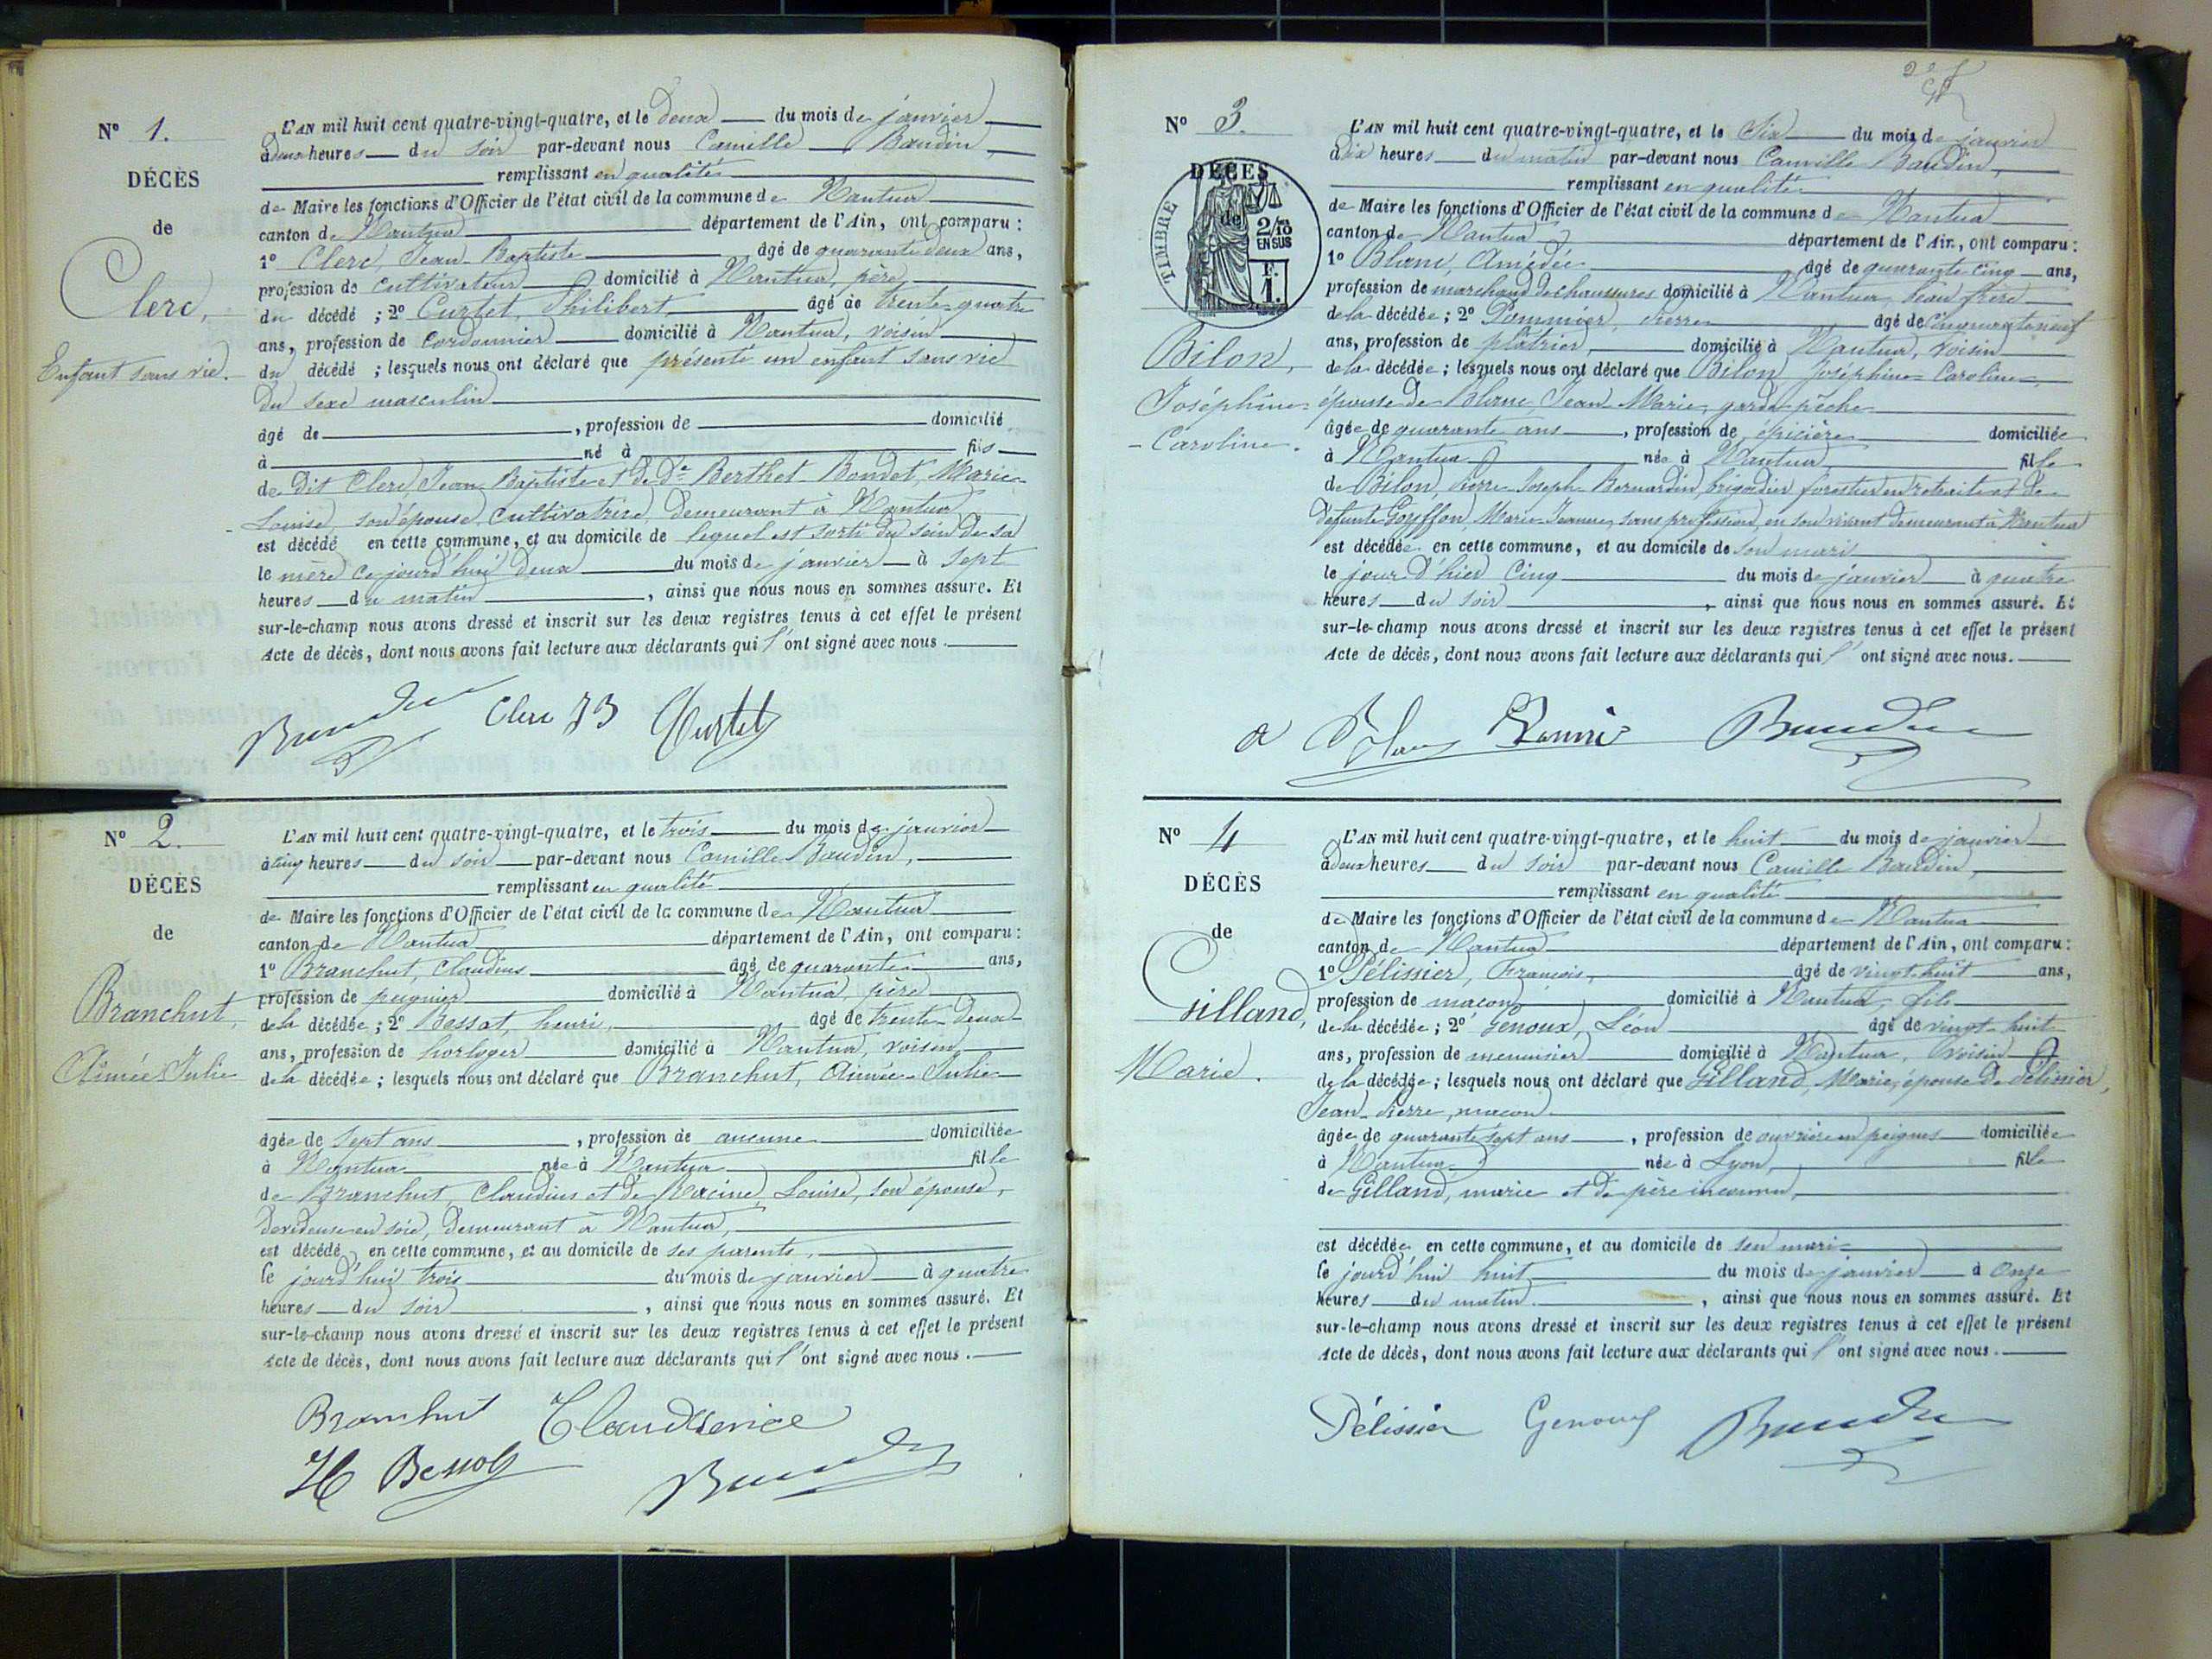 N° 1.
DÉCÈS
de
Clerc,
Enfant sans vie.
L'AN mil huit cent quatre-vingt-quatre, et le deux du mois de janvier
à deux heures du soir par-devant nous Camille Baudin,
remplissant en qualité
de Maire les fonctions d'Officier de l'état civil de la commune de Nantua
canton de Nantua département de l'Ain, ont comparu :
1° Clerc, Jean-Baptiste âgé de quarante deux ans,
profession de cultivateur domicilié à Nantua, père
du décédé ; 2° Curtet, Philibert, âgé de trente-quatre
ans, profession de Cordonnier domicilié à Nantua, voisin
du décédé ; lesquels nous ont déclaré que présenté un enfant sans vie
du sexe masculin
âgé de , profession de domicilié
à né à fils
de dit Clerc, Jean-Baptiste et de De Berthet-Bondet, Marie-
Louise, son épouse, cultivatrice, demeurant à Nantua
est décédé en cette commune, et au domicile de lequel est sorti du sein de sa
le mère ce jourd'hui deux du mois de janvier à sept
heures du matin , ainsi que nous nous en sommes assuré. Et
sur-le-champ nous avons dressé et inscrit sur les deux registres tenus à cet effet le présent
Acte de décès, dont nous avons fait lecture aux déclarants qui l'ont signé avec nous.
Baudin Clerc JB Curtet
N° 2.
DÉCÈS
de
Branchut,
Aimée-Julie
L'AN mil huit cent quatre-vingt-quatre, et le trois du mois de janvier
à cinq heures du soir par-devant nous Camille Baudin,
remplissant en qualité
de Maire les fonctions d'Officier de l'état civil de la commune de Nantua
canton de Nantua département de l'Ain, ont comparu :
1° Branchut, Claudius âgé de quarante ans,
profession de peignier domicilié à Nantua, père
de la décédée ; 2° Bessat, henri, âgé de trente-deux
ans, profession de horloger domicilié à Nantua, voisin
de la décédée ; lesquels nous ont déclaré que Branchut, Aimée-Julie
âgée de sept ans , profession de aucune domiciliée
à Nantua née à Nantua fille
de Branchut, Claudius et de Racine, Louise, son épouse,
dévideuse en soie, demeurant à Nantua,
est décédé en cette commune, et au domicile de ses parents,
le jourd'hui trois du mois de janvier à quatre
heures du soir , ainsi que nous nous en sommes assuré. Et
sur-le-champ nous avons dressé et inscrit sur les deux registres tenus à cet effet le présent
Acte de décès, dont nous avons fait lecture aux déclarants qui l'ont signé avec nous.
Branchut
Baudin
N° 3.
DÉCES
de
TIMBRE
2/10
EN SUS
F.
1.
Bilon,
Joséphine-
Caroline.
L'AN mil huit cent quatre-vingt-quatre, et le Six du mois de janvier
à dix heures du matin par-devant nous Camille Baudin,
remplissant en qualité
de Maire les fonctions d'Officier de l'état civil de la commune de Nantua
canton de Nantua département de l'Ain, ont comparu :
1° Blanc, Amédée âgé de quarante cinq ans,
profession de marchand de chaussures domicilié à Nantua, beau frère
de la décédée ; 2° Pommier, Pierre âgé de cinquante neuf
ans, profession de plâtrier, domicilié à Nantua, voisin
de la décédée ; lesquels nous ont déclaré que Bilon Joséphine-Caroline,
épouse de Blanc, Jean-Marie, garde-pêche
âgée de quarante ans , profession de épicière domiciliée
à Nantua née à Nantua fille
de Bilon, Pierre-Joseph-Bernardin, brigadier forestier en retraite et de
défunte Goyffon, Marie-Jeanne, sans profession, en son vivant demeurant à Nantua
est décédée en cette commune, et au domicile de son mari
le jour d'hier Cinq du mois de janvier à quatre
heures du soir , ainsi que nous nous en sommes assuré. Et
sur-le-champ nous avons dressé et inscrit sur les deux registres tenus à cet effet le présent
Acte de décès, dont nous avons fait lecture aux déclarants qui l'ont signé avec nous.
a Blanc Baudin
N° 4
DÉCÈS
de
Gilland,
Marie.
L'AN mil huit cent quatre-vingt-quatre, et le huit du mois de janvier
à deux heures du soir par-devant nous Camille Baudin,
remplissant en qualité
de Maire les fonctions d'Officier de l'état civil de la commune de Nantua
canton de Nantua département de l'Ain, ont comparu :
1° Pélissier, François, âgé de vingt-huit ans,
profession de maçon domicilié à Nantua, fils
de la décédée ; 2° Genoux, Léon âgé de vingt-huit
ans, profession de menuisier domicilié à Nantua, voisin
de la décédée ; lesquels nous ont déclaré que Gilland, Marie, épouse de Pélissier,
Jean-Pierre, maçon
âgée de quarante sept ans , profession de ouvrière en peignes domiciliée
à Nantua née à Lyon, fille
de Gilland, marie et de père inconnu,
est décédée en cette commune, et au domicile de son mari
le jourd'hui huit du mois de janvier à Onze
heures du matin , ainsi que nous nous en sommes assuré. Et
sur-le-champ nous avons dressé et inscrit sur les deux registres tenus à cet effet le présent
Acte de décès, dont nous avons fait lecture aux déclarants qui l'ont signé avec nous.
Pélissier Genoux Baudin